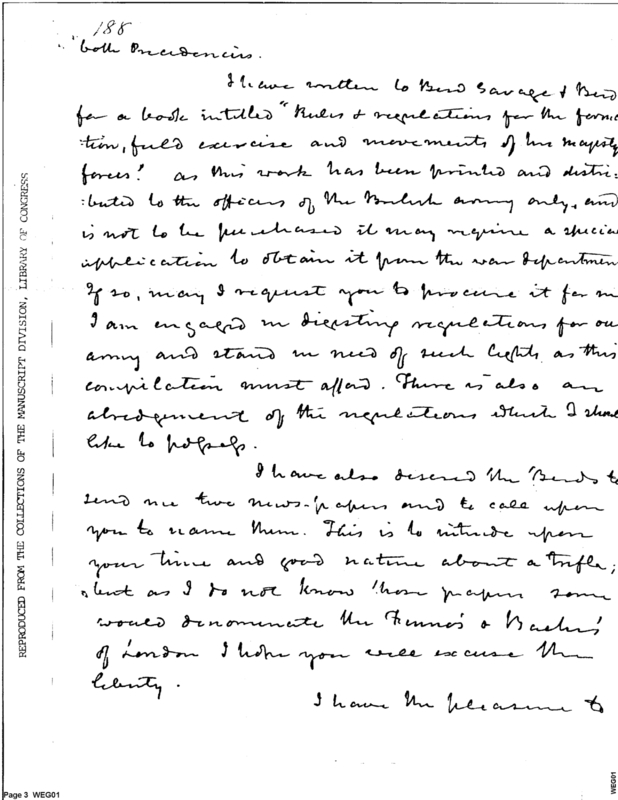 188
both Presidencies.
I have written to Bird Savage & Bird
for a book intitled "Rules & regulations for the forma
tion, field exercise and movements of his majesty
forces." as this work has been printed and distri:
:buted to the officers of the British army only, and
is not to be purchased it may require a special
application to obtain it from the war departmen
If so, may I request you to procure it for m
I am engaged in digesting regulations for ou
army and stand in need of such lights as this
compilation must afford. There is also an
abridgement of the regulations which I shou
like to possess.
I have also desired the Birds to
send me two news-papers and to call upon
you to name them. This is to intrude upon
your time and good nature about a trifle;
but as I do not know those papers some
would denominate the Fenno's & Bache's
of London I hope you will excuse the
liberty.
I have the pleasure to
REPRODUCED FROM THE COLLECTIONS OF THE MANUSCRIPT DIVISION, LIBRARY OF CONGRESS
Page 3 WEG01
WEG01